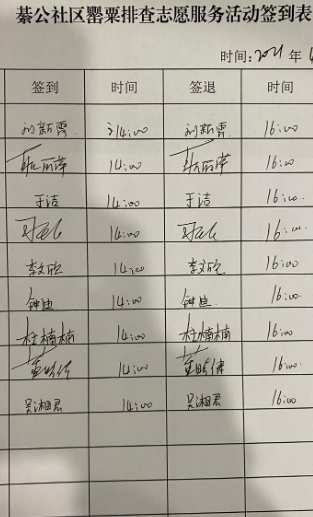 綦公社区罂粟排查志愿服务活动签到表
时间:2021年
签到 时间 签退 时间
刘新霞 14:00 刘新霞 16:00
丽萍 14:00 丽萍 16:00
于洁 14:00 于洁 16:00
14:00 16:00
李文欣 14:00 李文欣 16:00
钟迪 14:00 钟迪 16:00
杜楠楠 14:00 杜楠楠 16:00
董 14:00 董 16:00
吴湘君 14:00 吴湘君 16:00